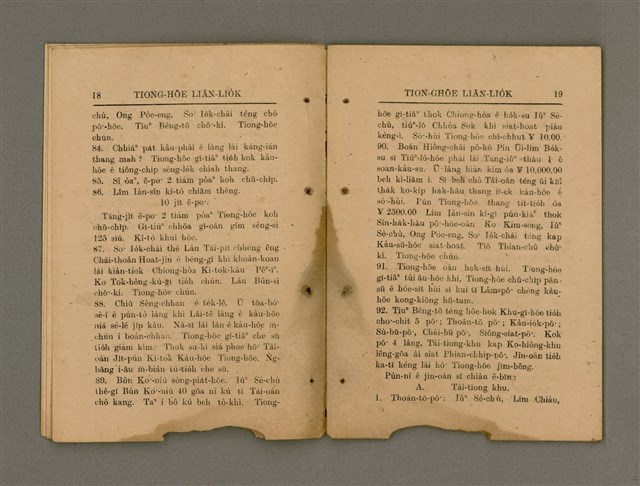 18 TIONG-HŌE LIĀN-LIÓK
chù, Ong Pôe-eng, So͘ Io̍k-châi téng chò
pō͘-hōe. Tiuⁿ Bêng-tō chō͘-kì. Tiong-hōe
chún.
84. Chhiáⁿ pa̍t kâu-phài ê lâng lâi káng-ián
thang mah? Tiong-hōe gī-tiâⁿ tio̍h kok kàu-
hōe ê tiông-chip sêng-lo̍k chiah thang.
85. Sī óaⁿ, ē-po͘ 2 tiám pòaⁿ koh chū-chip.
86. Lîm Iàn-sîn kî-tó chiām thêng.
10 ji̍t ē-po͘
Tâng-ji̍t ē-po͘ 2 tiám pòaⁿ Tiong-hōe koh
chū-chip. Gī-tiûⁿ chhōa gī-oân gîm sèng-si
125 siú. Kî-tó khui hōe.
87. So͘ Io̍k-châi thè Lán Tāi-pi̍t chhéng êng
Chài-thoân Hoat-jîn ê bēng-gī khì khoán-koan
lâi kiàn-tio̍k Chiong-hòa Ki-tok-kàu Pēⁿ-īⁿ.
Ko Tek-hêng-kū-gī tio̍h chún. Lán Bûn-si
chō͘-kì. Tiong-hōe chún.
88. Chiū Sêng-chhan ê tek-lē. Ū tōa-bó͘
sè-í ê pún-tō lâng khì Lāi-tē lâng ê kàu-hōe
niá sé-lé ji̍p kàu. Nā-sī lâi lán ê kàu-hōe m̄-
chún i boán-chhan. Tiong-hōe gī-tiâⁿ che sū
tio̍h giám kìm. Thok su-kì siá phoe hō͘ Tâi-
oân Ji̍t-pún Ki-tok Kàu-hōe Tiong-hōe. Ǹg-
bāng i-āu m̄-bián kú-tio̍h che sū.
89. Bûn Ko͘-niû sêng-pia̍t-hōe. Iûⁿ Sē-chù
thê-gī Bûn Ko͘-niû 40 gōa nî kú tī Tâi-oân
chò kang. Taⁿ i bô kú beh tò-khì. Tiong-
TION-GHŌE LIĀN-LIÓK 19
hōe gī-tiâⁿ thok Chiong-hòa ê bo̍k-su Iûⁿ Sē-
chù, tiúⁿ-ló Chhòa Sek khì siat-hoat piáu
kèng-ì. Só͘-hùi Tiong-hōe chi-chhut ¥ 10.00.
90. Boán Hiông-chài pô-kò Pîn Úi-lîm Bo̍k-
su sī Tiúⁿ-ló-hōe phài lâi Tang-iûⁿ thâu 1 ê
soan-kàu-su. Ū-lâng hiàn kim óa ¥ 10,000.00
beh kì-liām i. Sī beh chò Tâi-oân téng úi khì
tha̍k ko-kip ha̍k-hāu thang it-ek kàu-hōe ê
só͘-hùi. Pún Tiong-hōe thang tit-tio̍h óa
¥ 2500.00 Lîm Iàn-sîn kí-gī pún-kiāⁿ thok
Sîn-ha̍k-hāu pō͘-hōe-oân Ko Kim-seng, Iûⁿ
Sē-chù, Ong Pôe-eng, So͘ Io̍k-châi téng kap
Kàu-sū-hōe siat-hoat. Tiō Thian-chû chō͘-
kì. Tiong-hōe chún.
91. Tiong-hōe oân hok-si̍t húi. Tiong-hōe
gī-tiâⁿ tùi āu-hōe khí, Tiong-hōe chū-chip pān-
sū ê hok-si̍t húi sī kui tī Lâm-pō͘ chèng kàu-
hōe kong-kiōng hū-tam.
92. Tiuⁿ Bêng-tō téng hôe-hok Khu-gī-hōe tio̍h
cho͘-chit 5 pō͘; Thoân-tō pō͘; Kàu-io̍k-pō͘;
Sū-bū-pō͘, Châi-bū pō͘, Siông-siat-pō͘. Kok
pō͘ 4 lâng, Tâi-tiong-khu kap Ko-hiông-khu
lēng-gōa ài siat Phian-chhip-pō͘. Jîn-oân tio̍h
ka-tī kéng lâi hō͘ Tiong-hōe jīm-bēng.
Pún-nî ê jîn-oân sī chiàu ē-bīn:
A. Tâi-tiong khu.
1. Thoân-tō-pō͘: Iûⁿ Sē-chù, Lîm Chiàu,